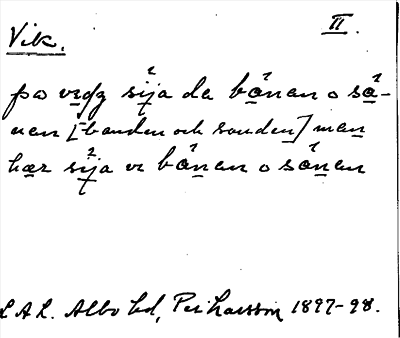 Vik.
II.
på vṇdg sija da bånan o så-
nan [= banden och sonden] man
hær sija vi bånan o sånan
L.A.L. Albo hd, Per Larsson 1897-98.